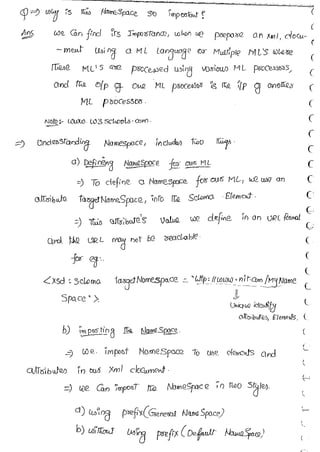 Q) => why is this NameSpace so important?
Ans. we can find its Importance, when we prepare an xml, docu-
-ment using a ML language or Multiple ML'S where
These ML'S are processed using various ML processors,
and the o/p of one ML processor is the i/p of another
ML processor.
Note:- www.w3schools.com.
=> Understanding Namespace, includes two things.
a) Defining NameSpace for our ML
=> To define a Namespace for our ML, we use an
attribute targetNameSpace, into the Schema Element.
=> This attribute's value we define in an URL format
and the URL may not be reachable.
for eg:-
<xsd:schema targetNamespace = "http://www.nit.com/MyName
Space">
Unique Identify
attributes, Elements.
b) importing the NameSpace.
=> we import NameSpace to use elements and
attributes in our Xml document.
=> we can import the NameSpace in two styles.
a) using prefix (General NameSpace)
b) without using prefix (Default NameSpace)